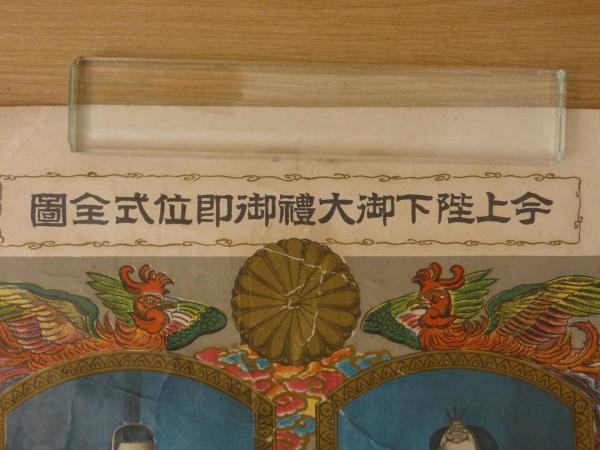 今上陛下御大禮御即位式全圖